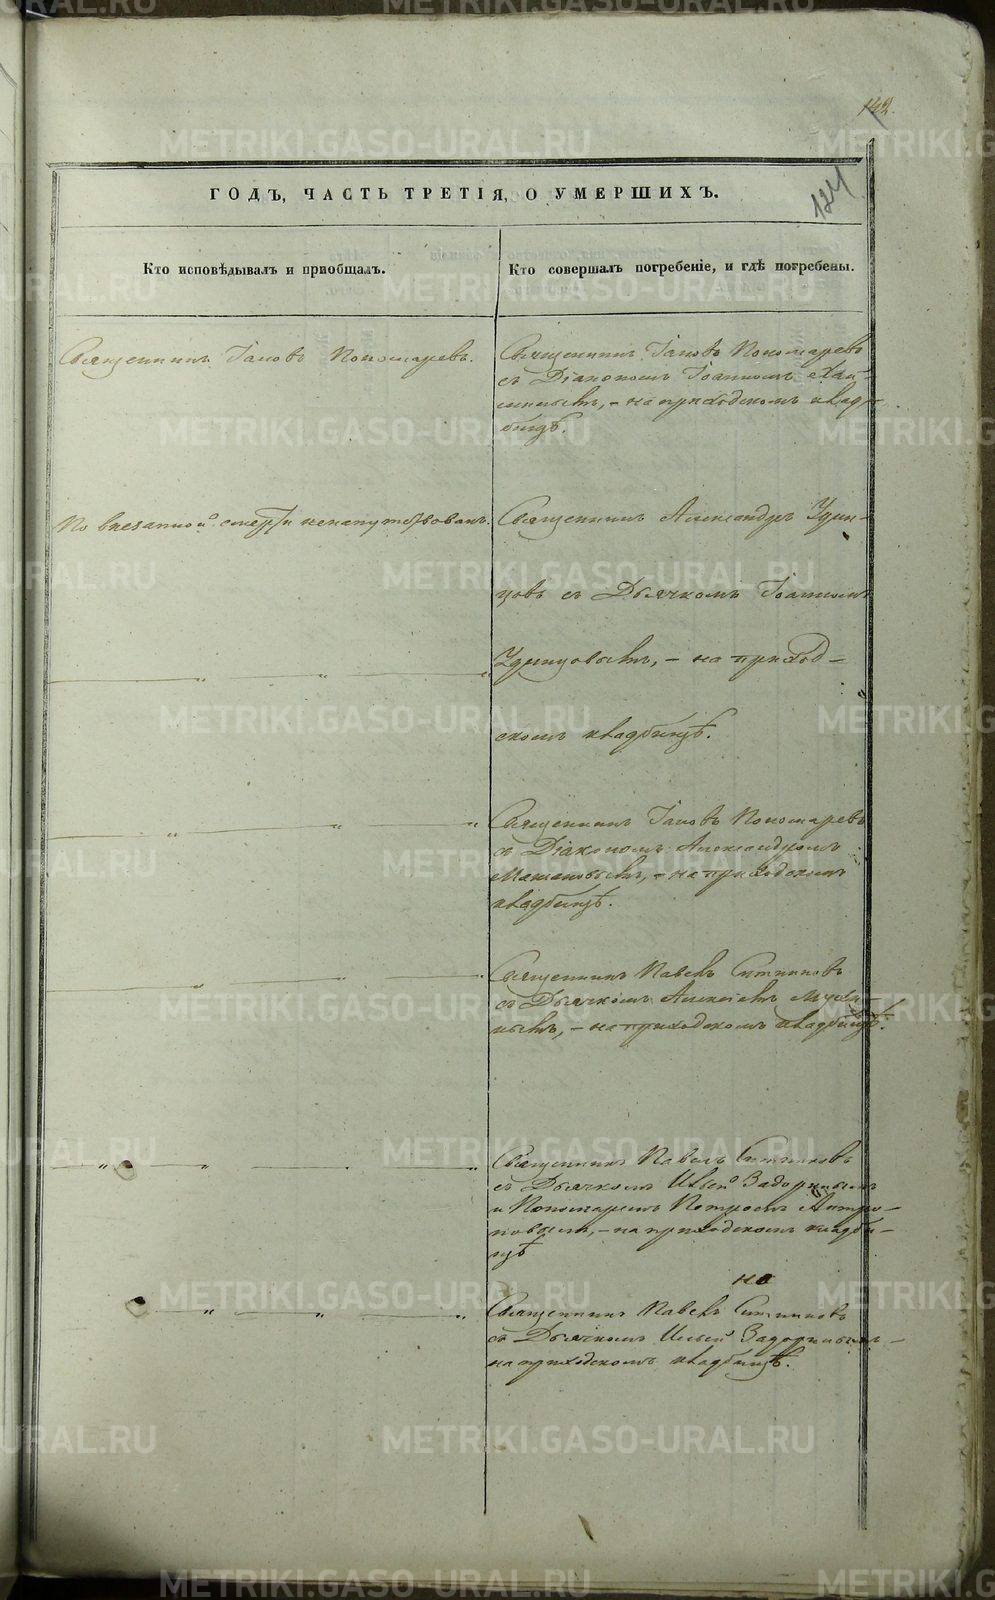 142.
124
ГОДЪ, ЧАСТЬ ТРЕТІЯ, О УМЕРШИХЪ.
Кто исповѣдывалъ и пріобщалъ.
Кто совершалъ погребеніе, и гдѣ погребены.
Священникъ Іаковъ Пономаревъ.
Священникъ Іаковъ Пономаревъ
съ Діакономъ Іоанномъ
на приходскомъ кладби-
бищѣ.
По внезапной смерти ненапутствованъ.
Священникъ Александръ Удин-
цовъ съ Дьячкомъ Іоанномъ
Удинцовымъ, – на приход-
скомъ кладбищѣ.
Священникъ Іаковъ Пономаревъ
съ Діакономъ Александромъ
на приходскомъ
кладбищѣ.
Священникъ Павелъ Ситниковъ
съ Дьячкомъ Алексѣемъ Мухи-
нымъ, – на приходскомъ кладбищѣ.
Священникъ Павелъ Ситниковъ
съ Дьячкомъ Ильей Задоринымъ
и Пономаремъ Петромъ Антро-
повымъ, – на приходскомъ кладби-
щѣ
на
Священникъ Павелъ Ситниковъ
съ Дьячкомъ Ильей Задоринымъ –
на приходскомъ кладбищѣ.
METRIKI.GASO-URAL.RU